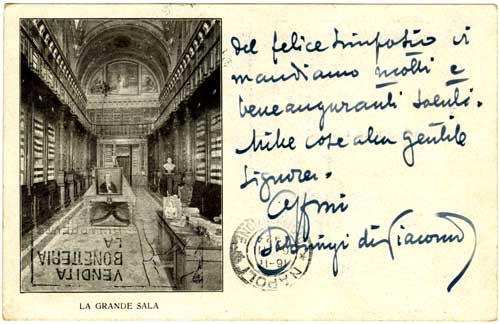 del felice simposio vi
mandiamo molti e
beneauguranti saluti.
Mille cose alla gentile
Signora.
Affmi
di Giacomo
NAPOLI
VENDITA
BONETTERIA
LA
LA GRANDE SALA